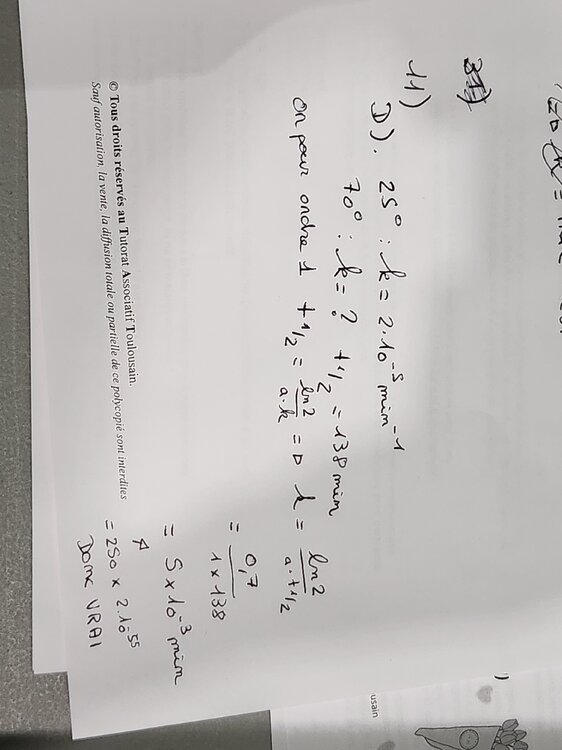 31)
11)
D). 25° : k = 2.10⁻⁵ min⁻¹
70° : k = ? t1/2 = 138 min
on pour ordre 1 t1/2 = ln2 / a.k => k = ln2 / a.t1/2
= 0,7 / 1 x 138
= 5 x 10⁻³ min
= 250 x 2.10⁻⁵⁵
Donc VRAI
© Tous droits réservés au Tutorat Associatif Toulousain.
Sauf autorisation, la vente, la diffusion totale ou partielle de ce polycopié sont interdites
usain